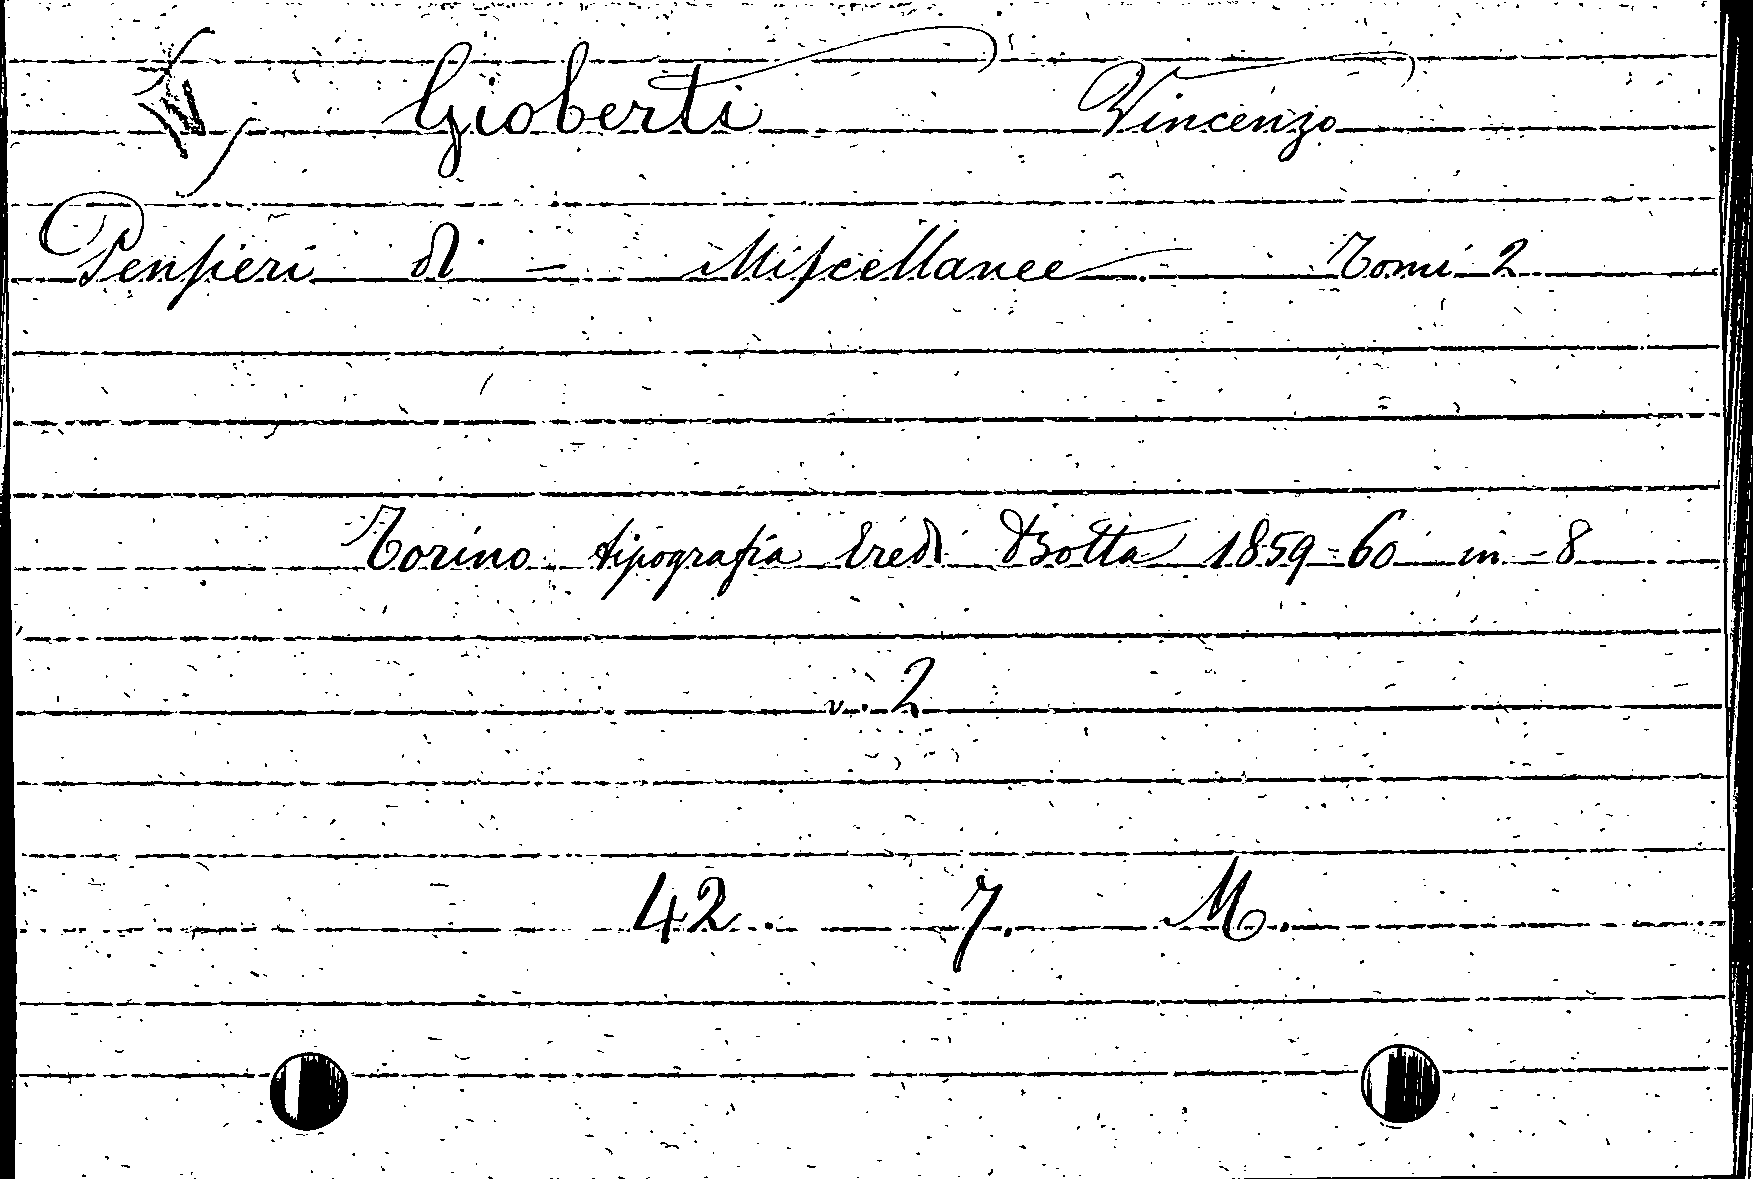 Gioberti Vincenzo
Pensieri di - Miscellanee. Tomi 2
Torino tipografia Eredi Botta 1859-60 in-8
v. 2
42. 7. M.